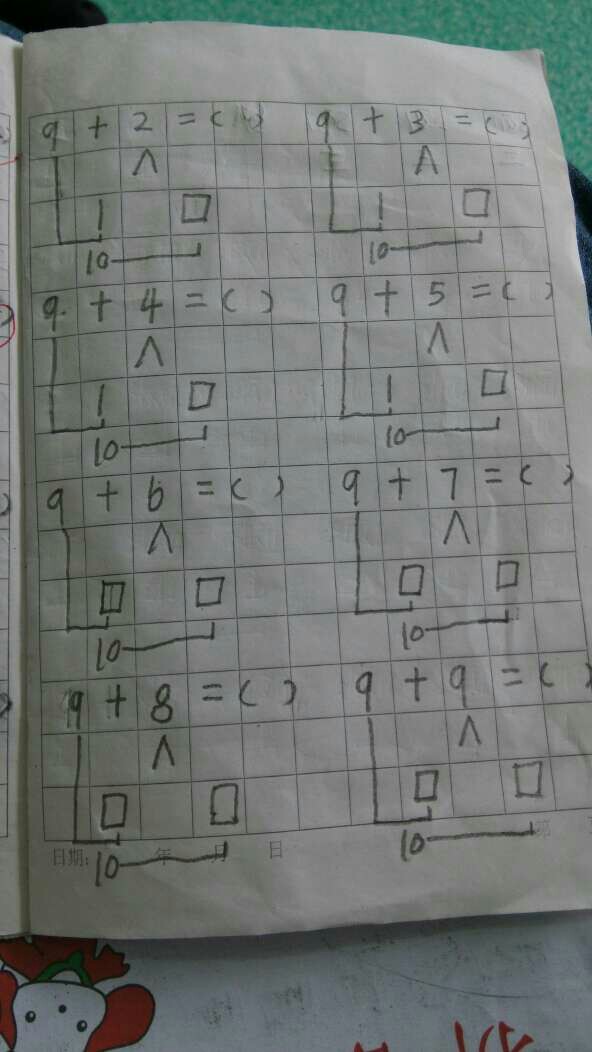 9 + 2 = ( ) 9 + 3 = ( )
∧ ∧
1 □ 1 □
10 10
9 + 4 = ( ) 9 + 5 = ( )
∧ ∧
1 □ 1 □
10 10
9 + 6 = ( ) 9 + 7 = ( )
∧ ∧
□ □ □ □
10 10
9 + 8 = ( ) 9 + 9 = ( )
∧ ∧
□ □ □ □
日期: 年 月 日 第
10 10